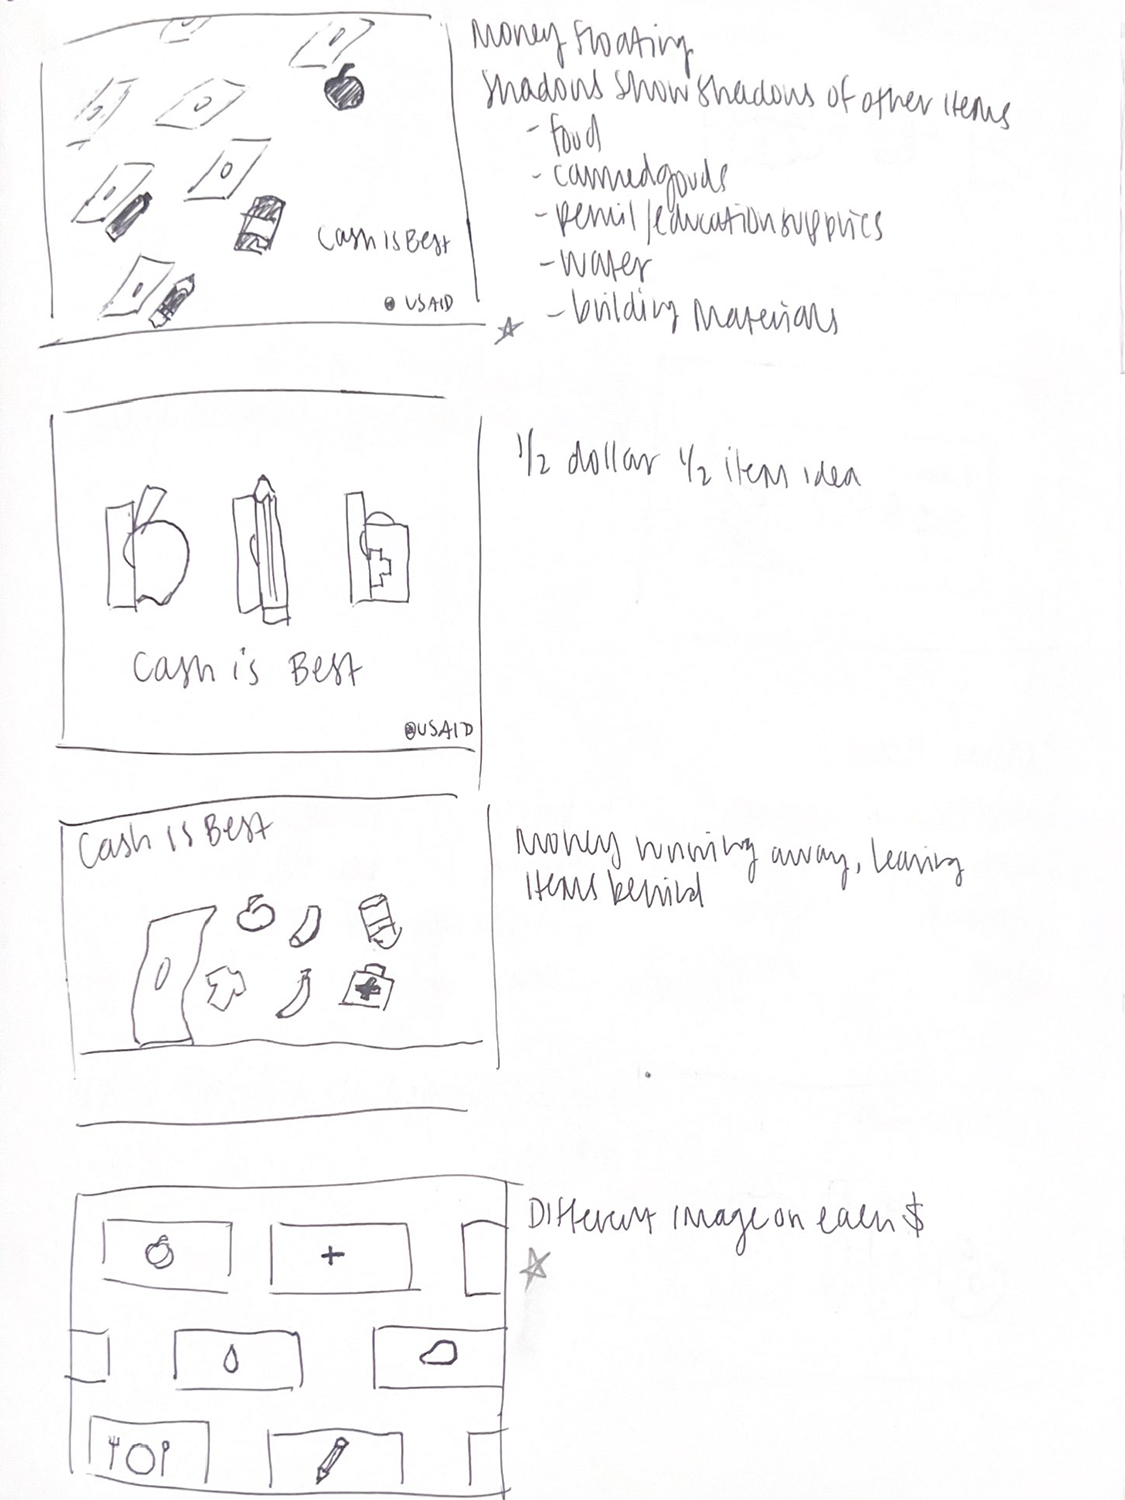 Money Floating
Shadows show shadows of other items
- food
- canned goods
- pencil/education supplies
- water
- building materials
Cash is Best
USAID
1/2 dollar 1/2 item idea
Cash is Best
USAID
Cash is Best
Money running away, leaving
items behind
Different image on each $